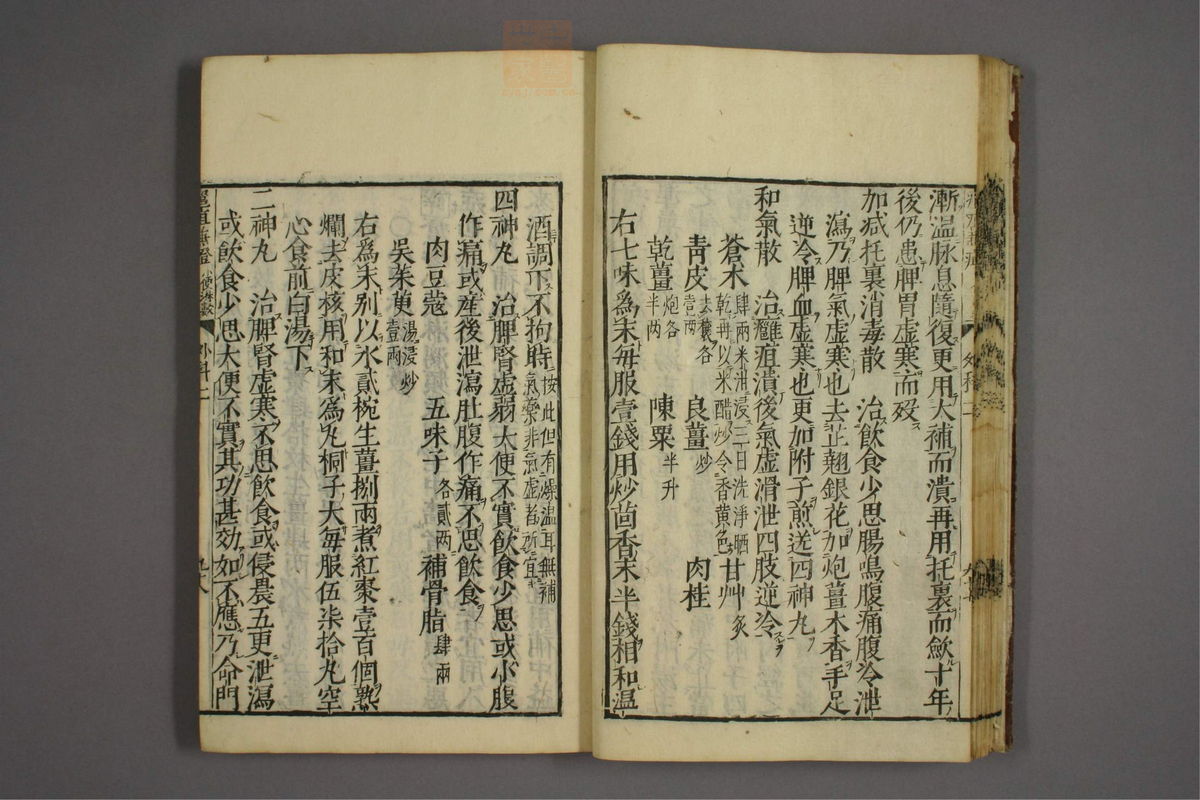 漸温脉息隨復更用大補而潰再用托裏而歛十年
後仍患脾胃虚寒而殁
加减托裏消毒散　治飲食少思腸鳴腹痛腹冷泄
瀉乃脾氣虚寒也去芷翹銀花加炮薑木香手足
逆冷脾血虚寒也更加附子煎送四神丸
和氣散　治癰疽潰後氣虚滑泄四肢逆冷
蒼木肆兩米泔浸三日洗淨晒乾再以米醋炒令香黄色　甘艸炙
青皮去穰各壹兩　良薑炒　肉桂
乾薑炮各半兩　陳粟半升
右七味為末每服壹錢用炒茴香末半錢相和温
酒調下不拘時按此但有燥温耳無補氣藥非氣虚者所宜
四神丸　治脾腎虚弱大便不實飲食少思或小腹
作痛或産後泄瀉肚腹作痛不思飲食
肉豆蔻　五味子各貳兩　補骨脂肆兩
吳茱萸湯浸炒壹兩
右為末别以水貳椀生薑捌兩煮紅棗壹百個熟
爛去皮核用和末為丸桐子大每服伍柒拾丸空
心食前白湯下
二神丸　治脾腎虚寒不思飲食或侵晨五更泄瀉
或飲食少思大便不實其功甚効如不應乃命門
外科二